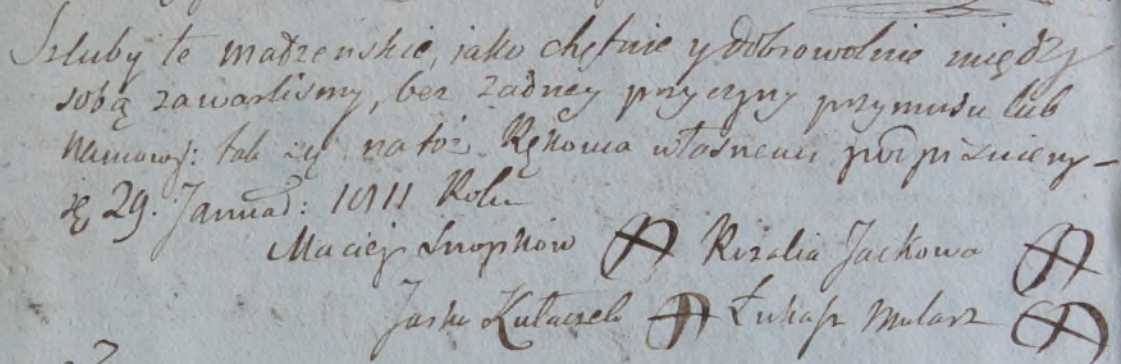 Szluby te małżenskie, jako chętnie y dobrowolnie między
sobą zawarlismy, bez żadney przyczyny przymusu lub
Namowy: tak iż na toż Rękoma własnemi podpisuiemy-
się 29. Januar: 1811 Roku
Maciej Snopkow Rozalia Jackowa
Jasko Kułaczek Łukasz Mularz